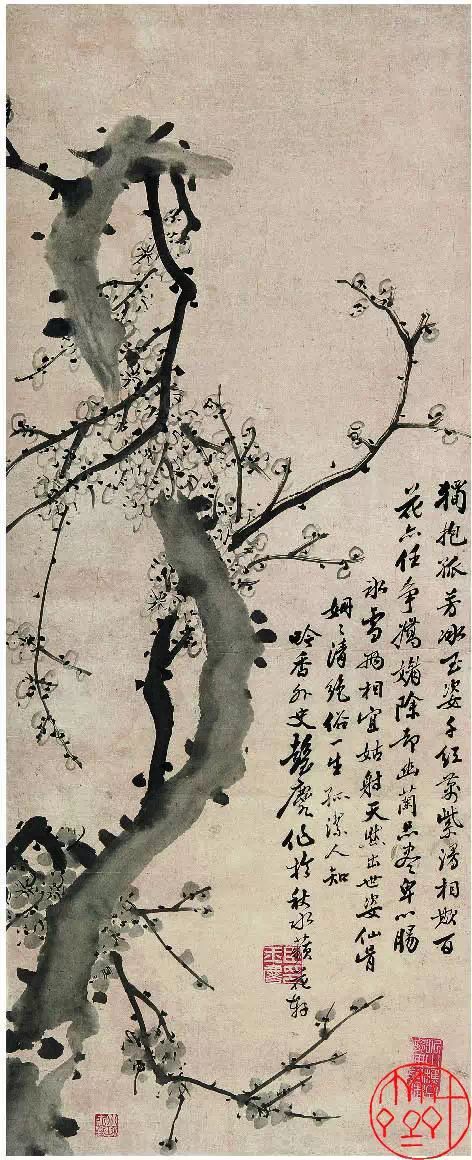 獨抱孤芳冰玉姿千紅萬紫漫相欺百
花亦任爭媚除却幽蘭品盡卑心腸
冰雪相宜姑射天然出世姿仙骨
姍〻清絕俗一生孤潔人知
吟香外史作於秋水蘋花軒